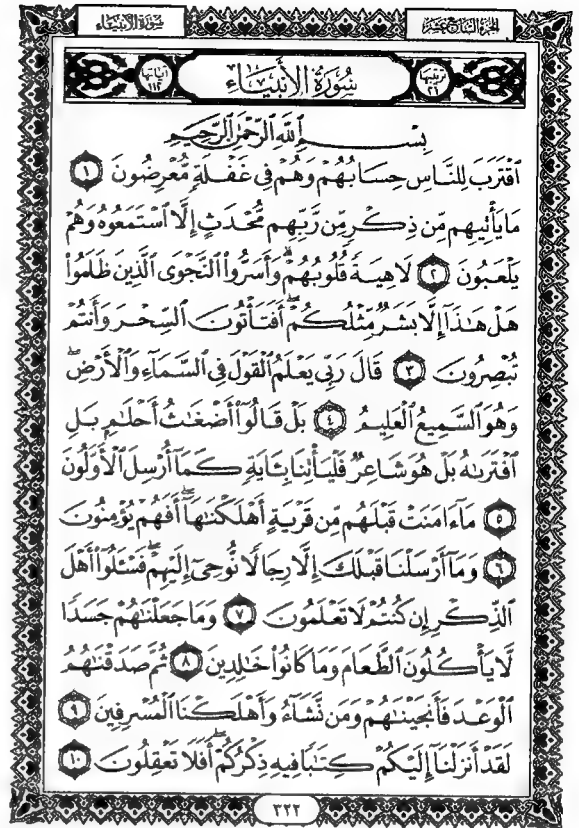 سُورَةُ الأَنبِيَاء
الجُزءُ السَّابِعَ عَشَرَ
ترتيبها ٢١
سُورَةُ الأَنبِيَاءِ
آياتها ١١٢
بِسْمِ ٱللَّهِ ٱلرَّحْمَٰنِ ٱلرَّحِيمِ
ٱقْتَرَبَ لِلنَّاسِ حِسَابُهُمْ وَهُمْ فِى غَفْلَةٍ مُّعْرِضُونَ ١
مَا يَأْتِيهِم مِّن ذِكْرٍ مِّن رَّبِّهِم مُّحْدَثٍ إِلَّا ٱسْتَمَعُوهُ وَهُمْ
يَلْعَبُونَ ٢ لَاهِيَةً قُلُوبُهُمْ ۗ وَأَسَرُّوا۟ ٱلنَّجْوَى ٱلَّذِينَ ظَلَمُوا۟
هَلْ هَٰذَآ إِلَّا بَشَرٌ مِّثْلُكُمْ ۖ أَفَتَأْتُونَ ٱلسِّحْرَ وَأَنتُمْ
تُبْصِرُونَ ٣ قَالَ رَبِّى يَعْلَمُ ٱلْقَوْلَ فِى ٱلسَّمَآءِ وَٱلْأَرْضِ ۖ
وَهُوَ ٱلسَّمِيعُ ٱلْعَلِيمُ ٤ بَلْ قَالُوٓا۟ أَضْغَٰثُ أَحْلَٰمٍۭ بَلِ
ٱفْتَرَىٰهُ بَلْ هُوَ شَاعِرٌ فَلْيَأْتِنَا بِـَٔايَةٍ كَمَآ أُرْسِلَ ٱلْأَوَّلُونَ
٥ مَآ ءَامَنَتْ قَبْلَهُم مِّن قَرْيَةٍ أَهْلَكْنَٰهَآ ۖ أَفَهُمْ يُؤْمِنُونَ
٦ وَمَآ أَرْسَلْنَا قَبْلَكَ إِلَّا رِجَالًا نُّوحِىٓ إِلَيْهِمْ ۖ فَسْـَٔلُوٓا۟ أَهْلَ
ٱلذِّكْرِ إِن كُنتُمْ لَا تَعْلَمُونَ ٧ وَمَا جَعَلْنَٰهُمْ جَسَدًا
لَّا يَأْكُلُونَ ٱلطَّعَامَ وَمَا كَانُوا۟ خَٰلِدِينَ ٨ ثُمَّ صَدَقْنَٰهُمُ
ٱلْوَعْدَ فَأَنجَيْنَٰهُمْ وَمَن نَّشَآءُ وَأَهْلَكْنَا ٱلْمُسْرِفِينَ ٩
لَقَدْ أَنزَلْنَآ إِلَيْكُمْ كِتَٰبًا فِيهِ ذِكْرُكُمْ ۖ أَفَلَا تَعْقِلُونَ ١٠
٣٢٢